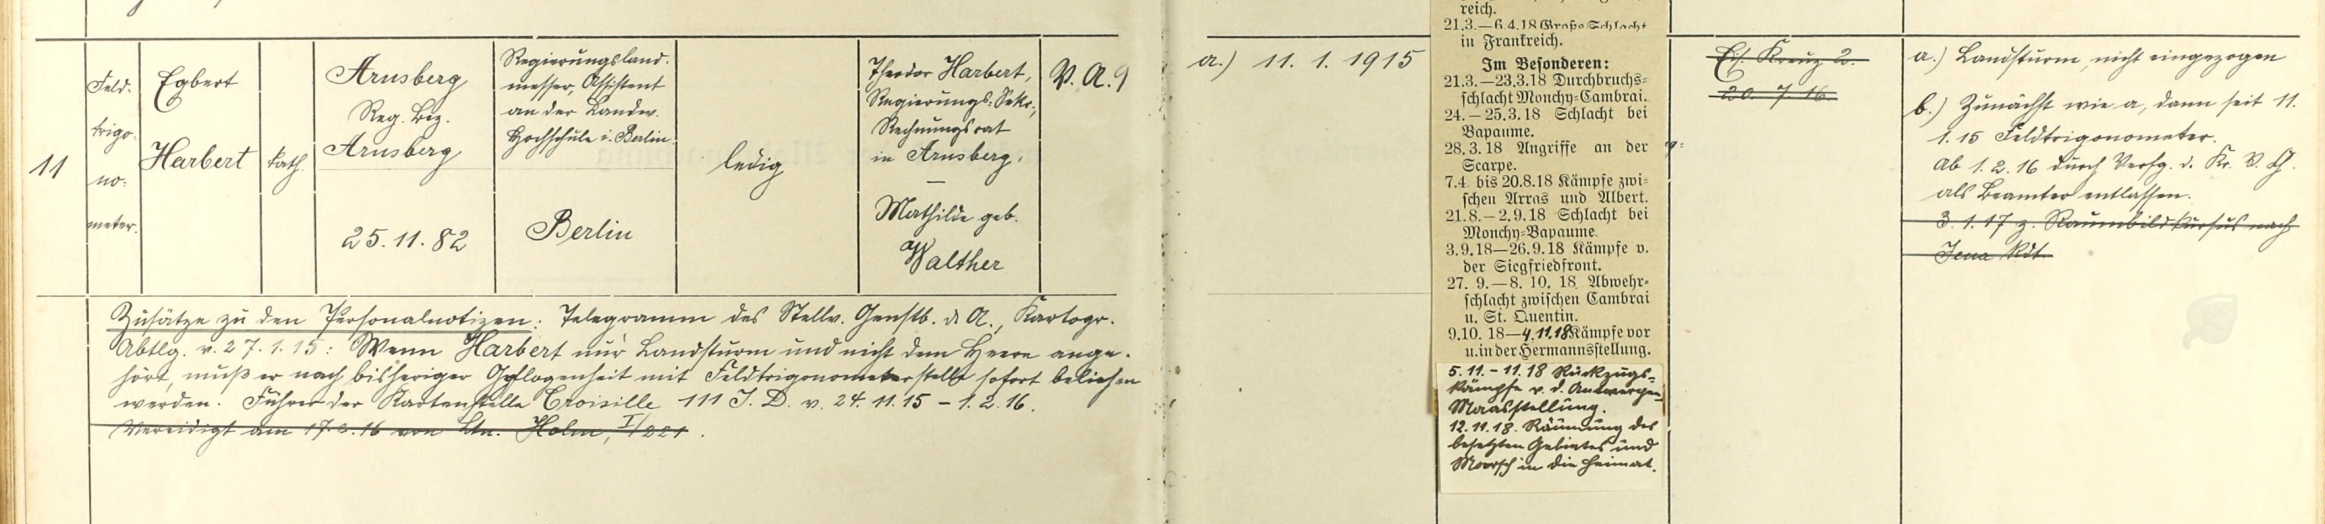 11
Feld-
trigo-
no-
meter.
Egbert
Harbert
kath.
Arnsberg
Reg. Bez.
Arnsberg
25.11.82
Regierungsland-
messer, Assistent
an der Landw.
Hochschule i. Berlin.
Berlin
ledig
Theodor Harbert,
Regierungs-Sekr.,
Rechnungsrat
in Arnsberg,
Mathilde geb.
Walther
V. A. 9
Zusätze zu den Personalnotizen: Telegramm des Stellv. Genstb. d. A., Kartogr.
Abtlg. v. 27.1.15: Wenn Harbert nur Landsturm und nicht dem Heere ange-
hört, muß er nach bisheriger Gepflogenheit mit Feldtrigonometerstelle sofort beliehen
werden. Führer der Kartenstelle Croisille 111 I. D. v. 24.11.15 – 1.2.16.
Vereidigt am 17. 2. 16 von Ltn. Holm, I/221.
a.) 11. 1. 1915
reich.
21.3.—6.4.18 Große Schlacht
in Frankreich.
Im Besonderen:
21.3.—23.3.18 Durchbruchs-
schlacht Monchy-Cambrai.
24.—25.3.18 Schlacht bei
Bapaume.
28.3.18 Angriffe an der
Scarpe.
7.4. bis 20.8.18 Kämpfe zwi-
schen Arras und Albert.
21.8.—2.9.18 Schlacht bei
Monchy-Bapaume.
3.9.18—26.9.18 Kämpfe v.
der Siegfriedfront.
27. 9.—8. 10. 18 Abwehr-
schlacht zwischen Cambrai
u. St. Quentin.
9.10. 18—4.11.18 Kämpfe vor
u. in der Hermannsstellung.
5.11. - 11.18 Rückzugs-
kämpfe v. d. Antwerpen-
Maasstellung.
12.11.18. Räumung des
besetzten Gebietes und
Marsch in die Heimat.
Eis. Kreuz 2.
20. 7. 16.
a.) Landsturm, nicht eingezogen
b.) Zunächst wie a, dann seit 11.
1. 15 Feldtrigonometer.
Ab 1. 2. 16 durch Verfg. d. Kr. V. A.
als Beamter entlassen.
3. 1. 17 z. Raumbildkursus nach
Jena Kdt.